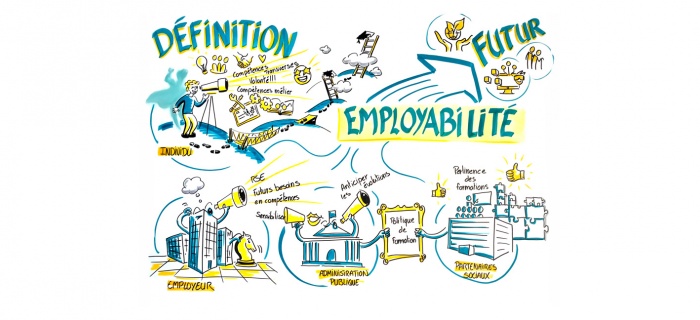 DÉFINITION
Compétences transverses
Volonté!!!
Compétences métier
INDIVIDU
FUTUR
EMPLOYABILITÉ
RSE
Futurs besoins
en compétences
Sensibiliser
EMPLOYEUR
Anticiper
les évolutions
ADMINISTRATION
PUBLIQUE
Politique
de
formation
Pertinence
des
formations
PARTENAIRES
SOCIAUX